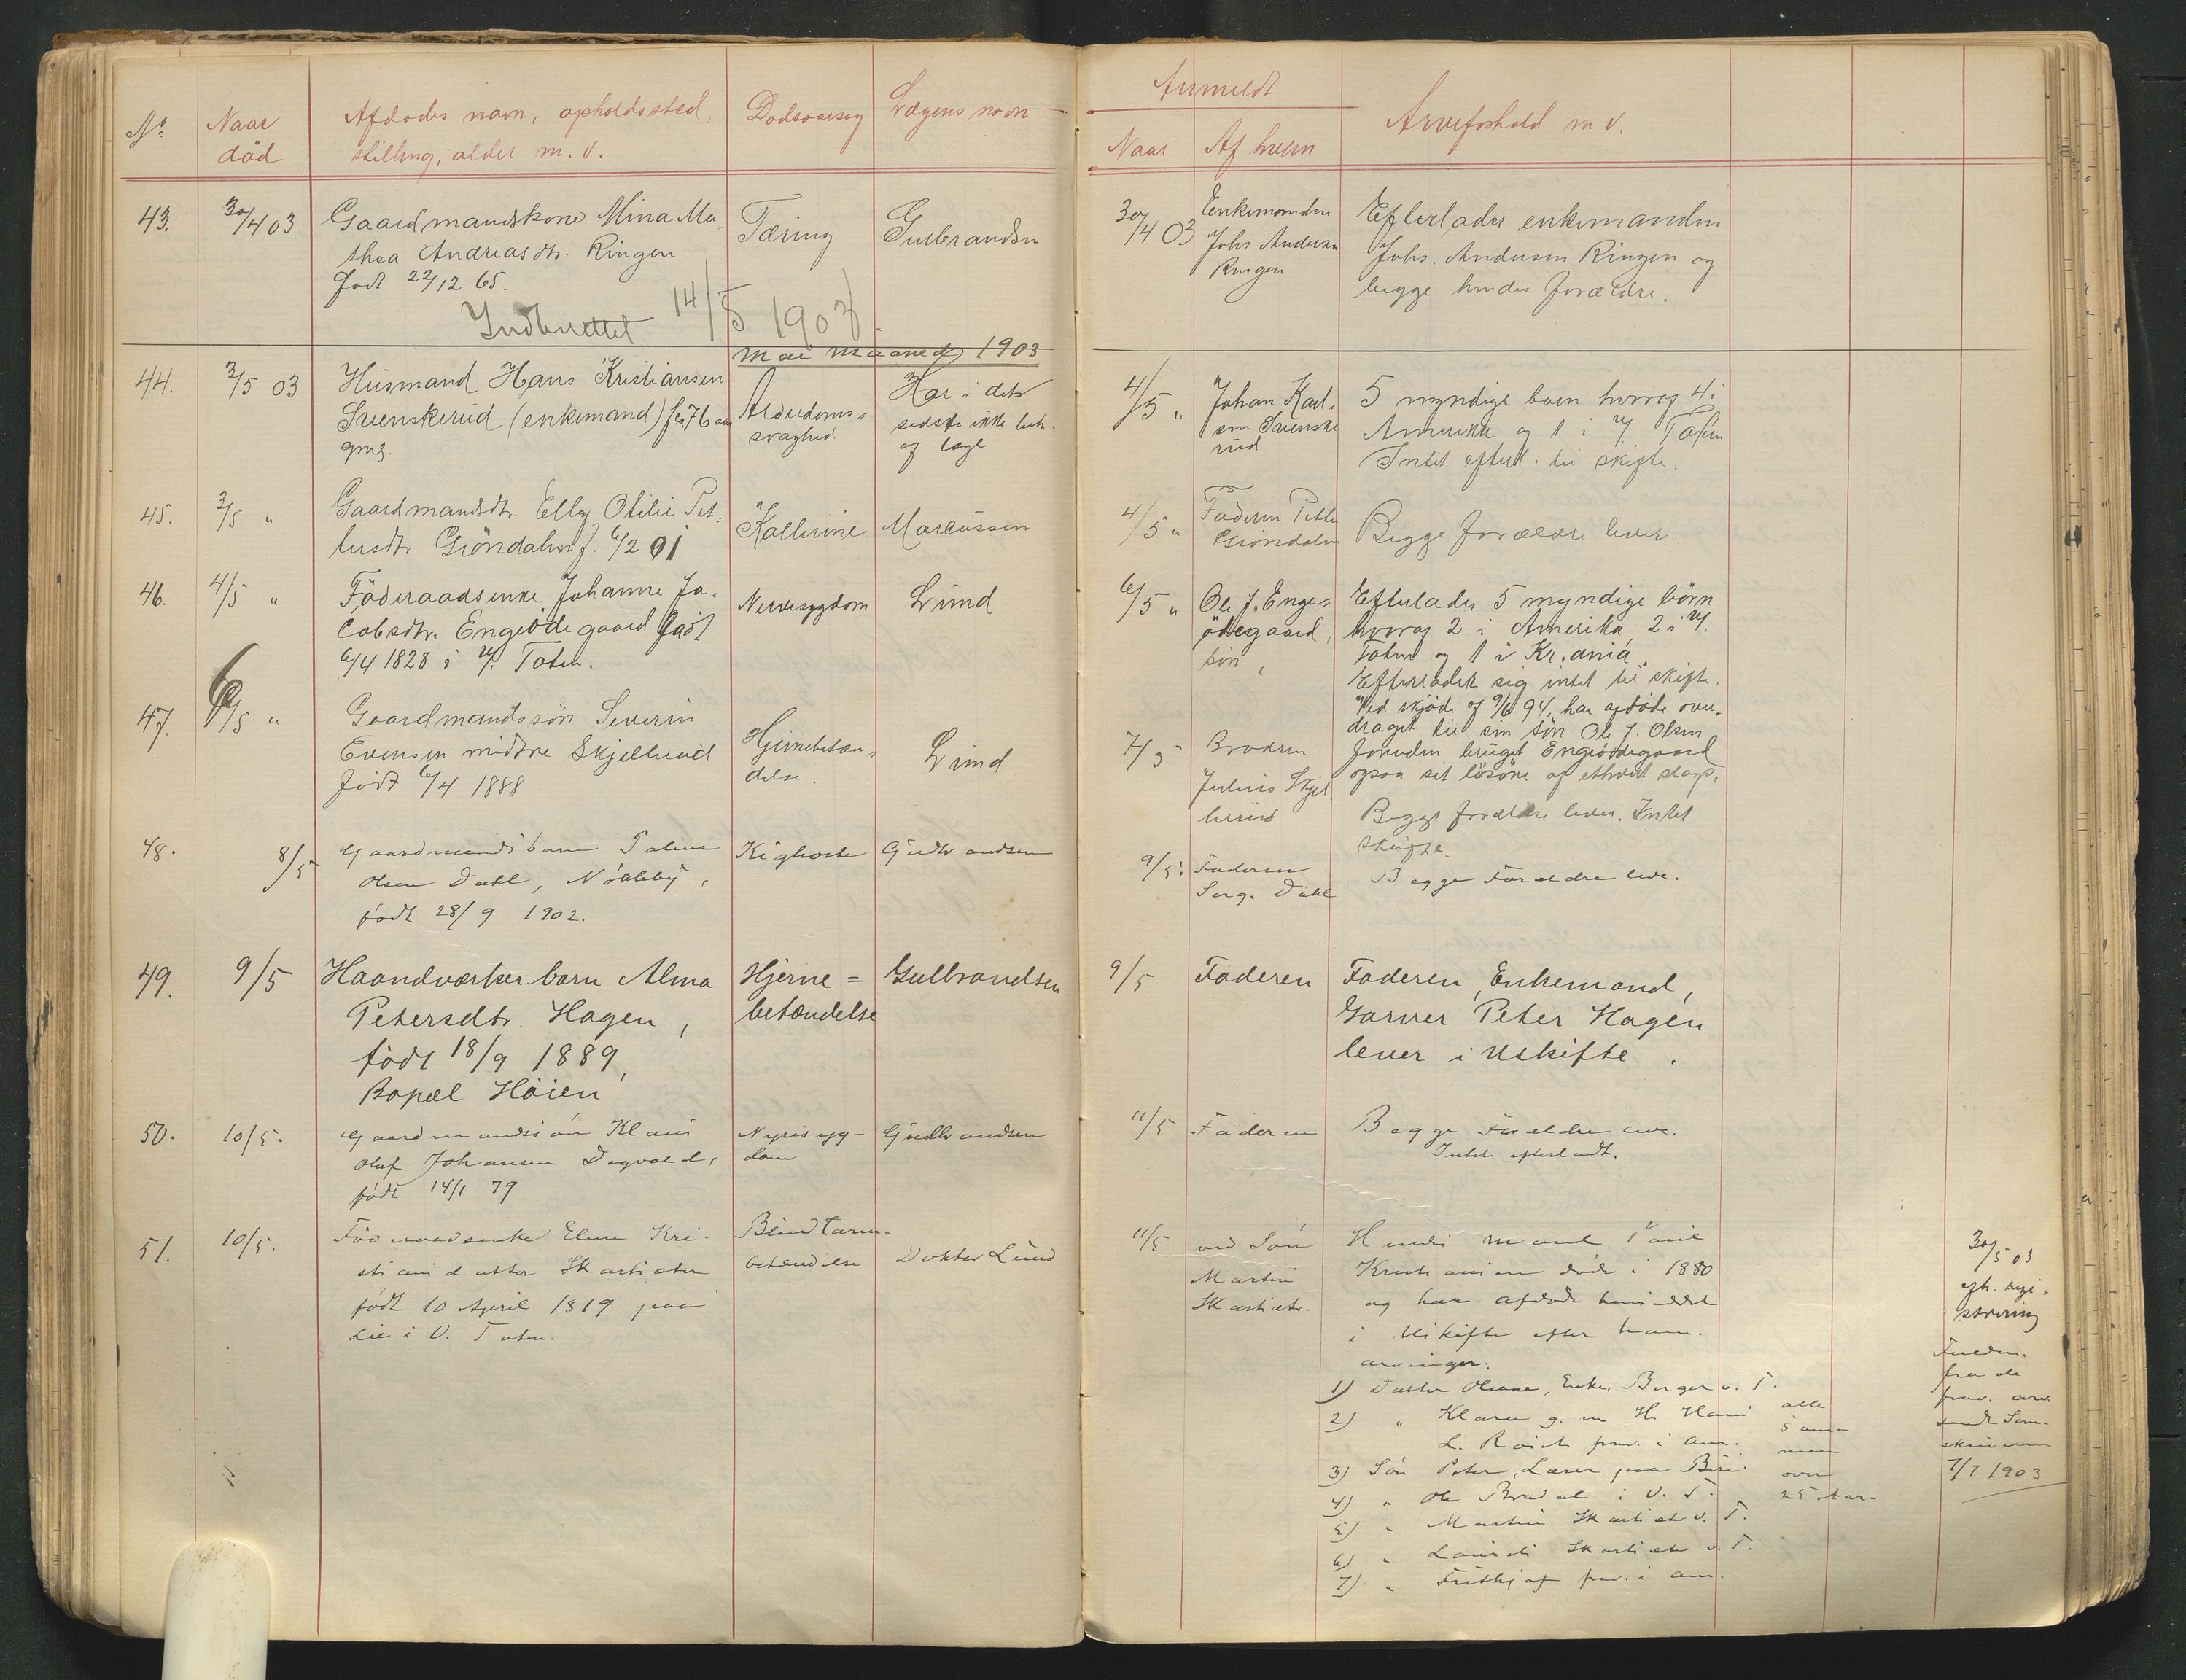 No Naar død Afdødes navn, opholdssted, stilling, alder m. v. Dødsaarsag Lægens navn
Anmeldt Naar Af hvem Arveforhold m v.
43. 30/4 03
Gaardmandskone Mina Ma-
thea Andreasdtr. Ringen
født 22/12 65.
Tæring
Gulbrandsen
30/4 03
Enkemanden
Johs Andersen
Ringen
Efterlader enkemanden
Johs. Andersen Ringen og
begge hendes forældre.
Indberettet 14/5 1903.
Mai maaned 1903
44. 3/5 03
Husmand Hans Kristiansen
Svenskerud (enkemand) 76 aar
gml.
Alderdoms-
svaghed
Har i det
sidste ikke beh.
af læge
4/5 "
Johan Karl-
sen Svenske
rud
5 myndige børn hvoraf 4 i
Amerika og 1 i V. Toten
Intet efterl. til skifte.
45. 3/5 "
Gaardmandsdtr. Elly Otilie Pet-
tersdtr. Gröndalen f. 6/2 01
Kallerine
Marcussen
4/5 "
Faderen Petter
Gröndalen
Begge forældre lever
46. 4/5 "
Föderaadsenke Johanne Ja-
cobsdtr. Engeödegaard født
6/4 1828 i V. Toten.
Nervesygdom
Lund
6/5 "
Ole J. Enge-
ödegaard,
sön
Efterlader 5 myndige börn
hvoraf 2 i Amerika, 2 i V.
Toten og 1 i Kr.ania.
Efterlader sig intet til skifte.
Ved skjöde af 9/6 94, har afdöde over-
draget til sin sön Ole J. Olsen
foruden bruget Engeödegaard
ogsaa sit lösöre af ethvert slags.
47. 6/5 "
Gaardmandssön Severin
Evensen midtre Skjellerud
født 6/4 1888
Hjernebetæn-
delse.
Lund
7/5
Broderen
Julius Skjel
lerud
Begge forældre lever. Intet
skifte.
48. 8/5
Gaardmandsbarn Palma
Olsen Dahl, Nökleby,
født 28/9 1902.
Kighoste
Gudbrandsen
9/5.
Faderen
Serg. Dahl
Begge Forældre leve.
49. 9/5
Haandværkerbarn Alma
Petersdtr. Hagen,
født 18/9 1889,
Bopæl Höien
Hjerne=
betændelse
Gulbrandsen
9/5
Faderen
Faderen, Enkemand,
Garver Peter Hagen
lever i Uskifte.
50. 10/5.
Gaardmandssön Klaus
Olaf Johansen Dagvold,
født 14/1 79
Nyresyg-
dom
Gudbrandsen
11/5
Faderen
Begge Forældre leve.
Intet efterladt.
51. 10/5.
Föderaadsenke Elene Kri-
stiansdatter Skartsæter
født 10 April 1819 paa
Lie i V. Toten.
Blindtarm-
betændelse
Doktor Lund
11/5
ved Sön
Martin
Skartsæter.
Hendes mand Paul
Kristiansen döde i 1880
og har afdöde hensiddet
i Uskifte efter ham.
arvinger:
1) Datter Oleane, Enke, Berger v. T.
2) " Klara g. m. H. Hans
L. Röise frav. i Am.
3) Sön Peter, Læser paa Biri
4) " Ole Bradal i V. T.
5) " Martin Skartsæter v. T.
6) " Laurits Skartsæter v. T.
7) " Frithjof frav. i Am.
alle
sam-
men
over
25 Aar.
30/5 03
afh. regi-
strering
Fuldm.
fra de
frav. arv.
sendt Soren-
skriveren
7/7 1903